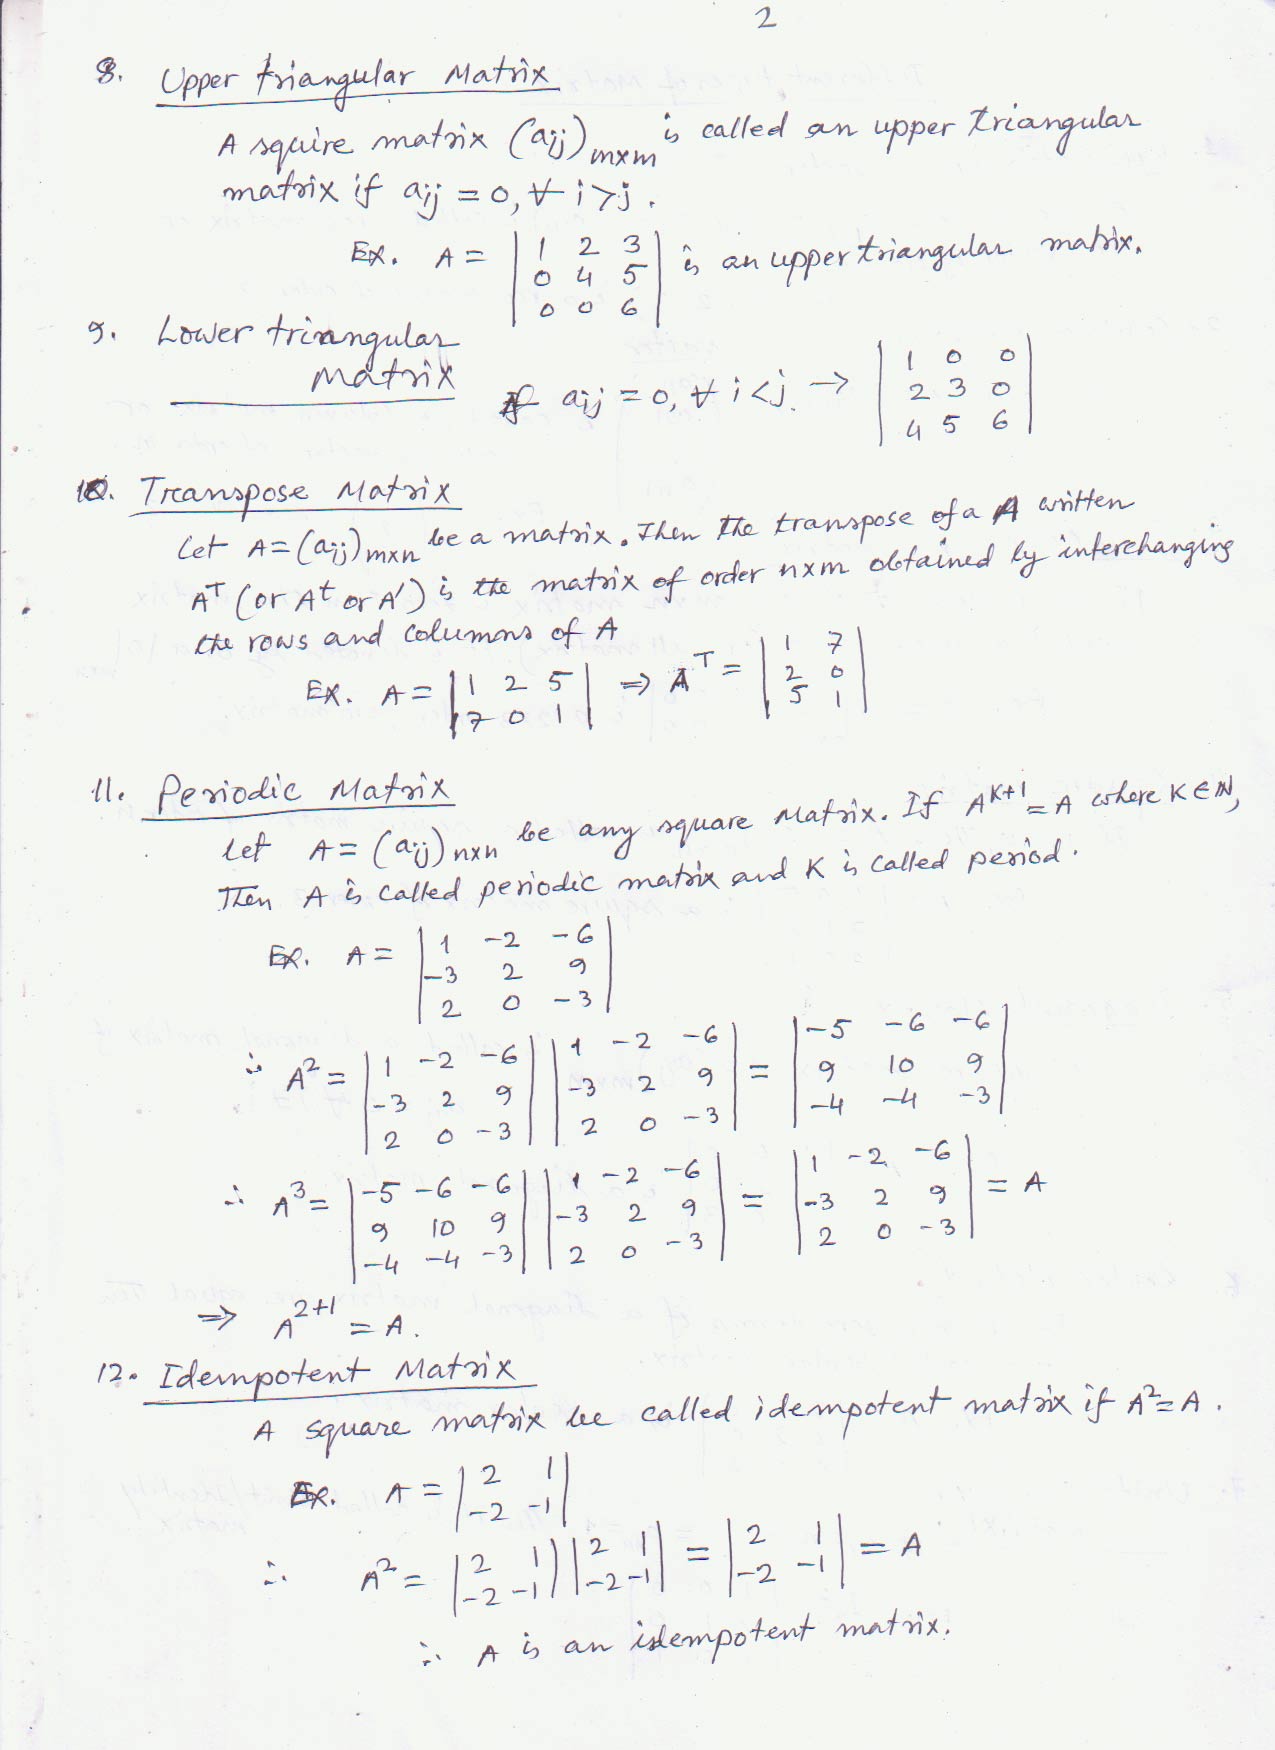 2
8. Upper triangular Matrix
A squire matrix (aij)m×m is called an upper triangular
matrix if aij = 0, ∀ i>j.
Ex. A = | 1 2 3 | is an upper triangular matrix.
| 0 4 5 |
| 0 0 6 |
9. Lower triangular
Matrix
If aij = 0, ∀ i<j. → | 1 0 0 |
| 2 3 0 |
| 4 5 6 |
10. Transpose Matrix
Let A = (aij)m×n be a matrix. Then the transpose of a A written
A^T (or A^t or A') is the matrix of order n×m obtained by interchanging
the rows and columns of A
Ex. A = | 1 2 5 | ⇒ A^T = | 1 7 |
| 7 0 1 | | 2 0 |
| 5 1 |
11. Periodic Matrix
Let A = (aij)n×n be any square Matrix. If A^K+1 = A where K ∈ N,
Then A is called periodic matrix and K is called period.
Ex. A = | 1 -2 -6 |
| -3 2 9 |
| 2 0 -3 |
∴ A² = | 1 -2 -6 | | 1 -2 -6 | = | -5 -6 -6 |
| -3 2 9 | | -3 2 9 | | 9 10 9 |
| 2 0 -3 | | 2 0 -3 | | -4 -4 -3 |
∴ A³ = | -5 -6 -6 | | 1 -2 -6 | = | 1 -2 -6 | = A
| 9 10 9 | | -3 2 9 | | -3 2 9 |
| -4 -4 -3 | | 2 0 -3 | | 2 0 -3 |
⇒ A^2+1 = A.
12. Idempotent Matrix
A square matrix be called idempotent matrix if A² = A.
Ex. A = | 2 1 |
| -2 -1 |
∴ A² = | 2 1 | | 2 1 | = | 2 1 | = A
| -2 -1 | | -2 -1 | | -2 -1 |
∴ A is an idempotent matrix.